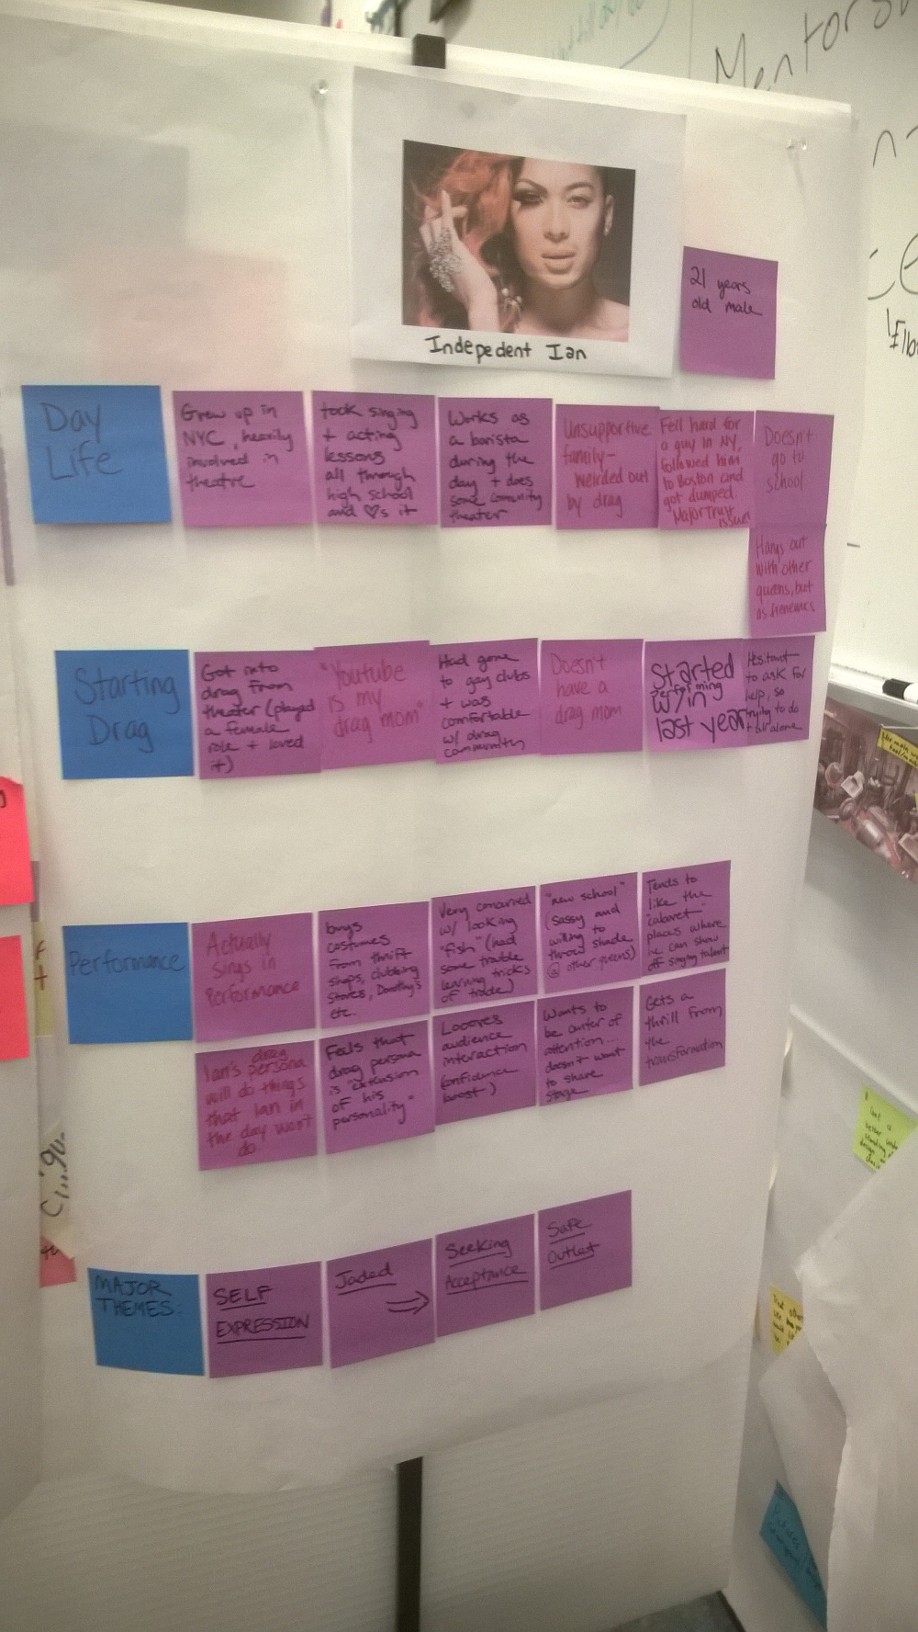 Mentors
Indepedent Ian
21 years
old male
Day
Life
Grew up in
NYC, heavily
involved in
theatre
took singing
+ acting
lessons
all through
high school
and ♡s it
Works as
a barista
during the
day + does
some comunity
theater
Unsupportive
family-
weirded out
by drag
Fell hard for
a guy in NY,
followed him
to Boston and
got dumped.
Major Trust
issues
Doesn't
go to
school
Hangs out
with other
queens, but
as frenemies
Starting
Drag
Got into
drag from
theater (played
a female
role + loved
it)
"Youtube
is my
drag mom"
Had gone
to gay clubs
+ was
comfortable
w/ drag
community
Doesn't
have a
drag mom
Started
performing
w/in
last year
Hesitant
to ask for
help, so
trying to do
it alone
Performance
Actually
sings in
Performance
buys
costumes
from thrift
shops, clubbing
stores, Dorothy's
etc.
Very concerned
w/ looking
"fish" (had
some trouble
learning tricks
of trade)
"new school"
(sassy and
willing to
throw shade
@ other queens)
Tends to
like the
"cabaret"
places where
he can show
off singing talent
Ian's drag persona
will do things
that Ian in
the day won't
do
Feels that
drag persona
is "extension
of his
personality"
Loooves
audience
interaction
(confidence
boost)
Wants to
be center of
attention...
doesn't want
to share
stage
Gets a
thrill from
the
transformation
MAJOR
THEMES:
SELF
EXPRESSION
Jaded
Seeking
Acceptance
Safe
Outlet